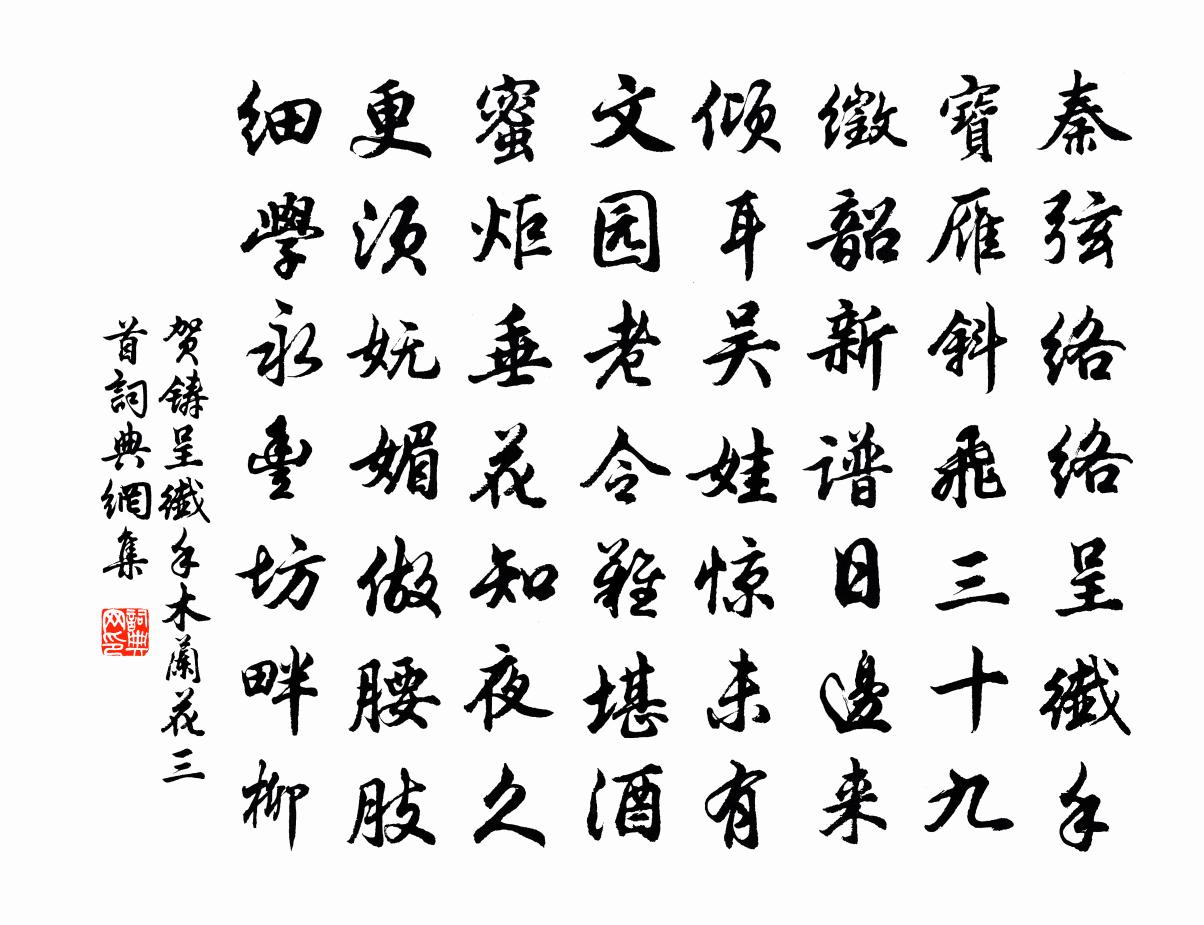 秦弦络络呈纖手
寶雁斜飛三十九
徵韶新谱日邊来
倾耳吴娃惊未有
文园老令難堪酒
蜜炬垂花知夜久
更须妩媚做腰肢
细學永豐坊畔柳
贺鑄呈纖手木蘭花三
首詞典網集
詞典
网印